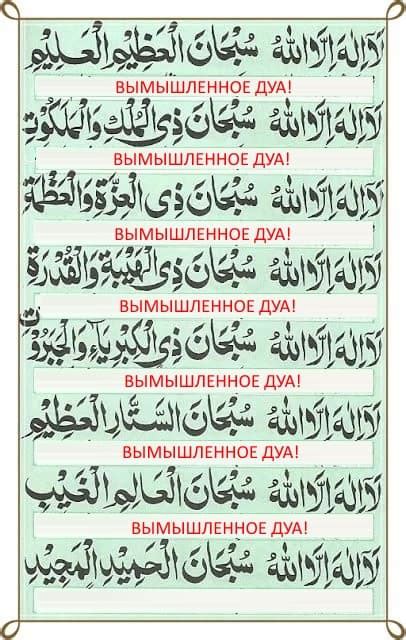 لَآ اِلٰهَ اِلَّا اللهُ سُبْحَانَ الْعَظِيْمِ الْعَلِيْمِ
ВЫМЫШЛЕННОЕ ДУА!
لَآ اِلٰهَ اِلَّا اللهُ سُبْحَانَ ذِي الْمُلْكِ وَالْمَلَكُوْتِ
ВЫМЫШЛЕННОЕ ДУА!
لَآ اِلٰهَ اِلَّا اللهُ سُبْحَانَ ذِي الْعِزَّةِ وَالْعَظَمَةِ
ВЫМЫШЛЕННОЕ ДУА!
لَآ اِلٰهَ اِلَّا اللهُ سُبْحَانَ ذِي الْهَيْبَةِ وَالْقُدْرَةِ
ВЫМЫШЛЕННОЕ ДУА!
لَآ اِلٰهَ اِلَّا اللهُ سُبْحَانَ ذِي الْكِبْرِيَآءِ وَالْجَبَرُوْتِ
ВЫМЫШЛЕННОЕ ДУА!
لَآ اِلٰهَ اِلَّا اللهُ سُبْحَانَ السَّتَّارِ الْعَظِيْمِ
ВЫМЫШЛЕННОЕ ДУА!
لَآ اِلٰهَ اِلَّا اللهُ سُبْحَانَ الْعَالِمِ الْغَيْبِ
ВЫМЫШЛЕННОЕ ДУА!
لَآ اِلٰهَ اِلَّا اللهُ سُبْحَانَ الْحَمِيْدِ الْمَجِيْدِ